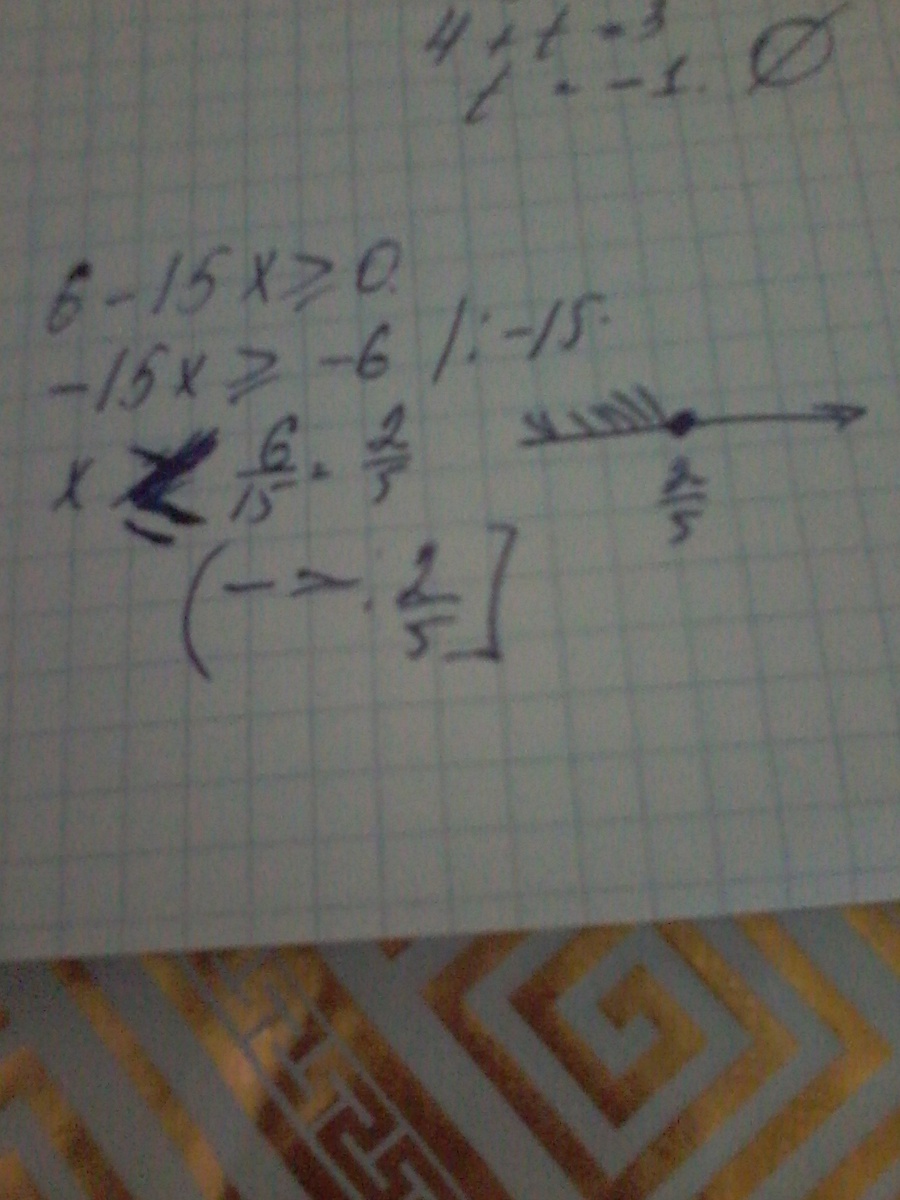 4 + t = 3
t = -1. ∅
6 - 15x ≥ 0.
-15x ≥ -6 / : -15.
x ≤ 6/15 = 2/5
2/5
(-∞; 2/5]